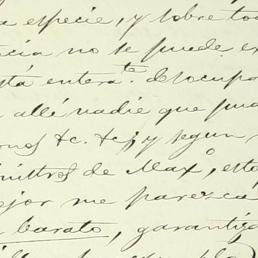 a especie, y sobre tod
cia no se puede ex
stá enterate. Desocupa
allí nadie que pue
ernos &c. &c; y segun
inistros de Max.o, está
ejor me parezca
barato, garantiza